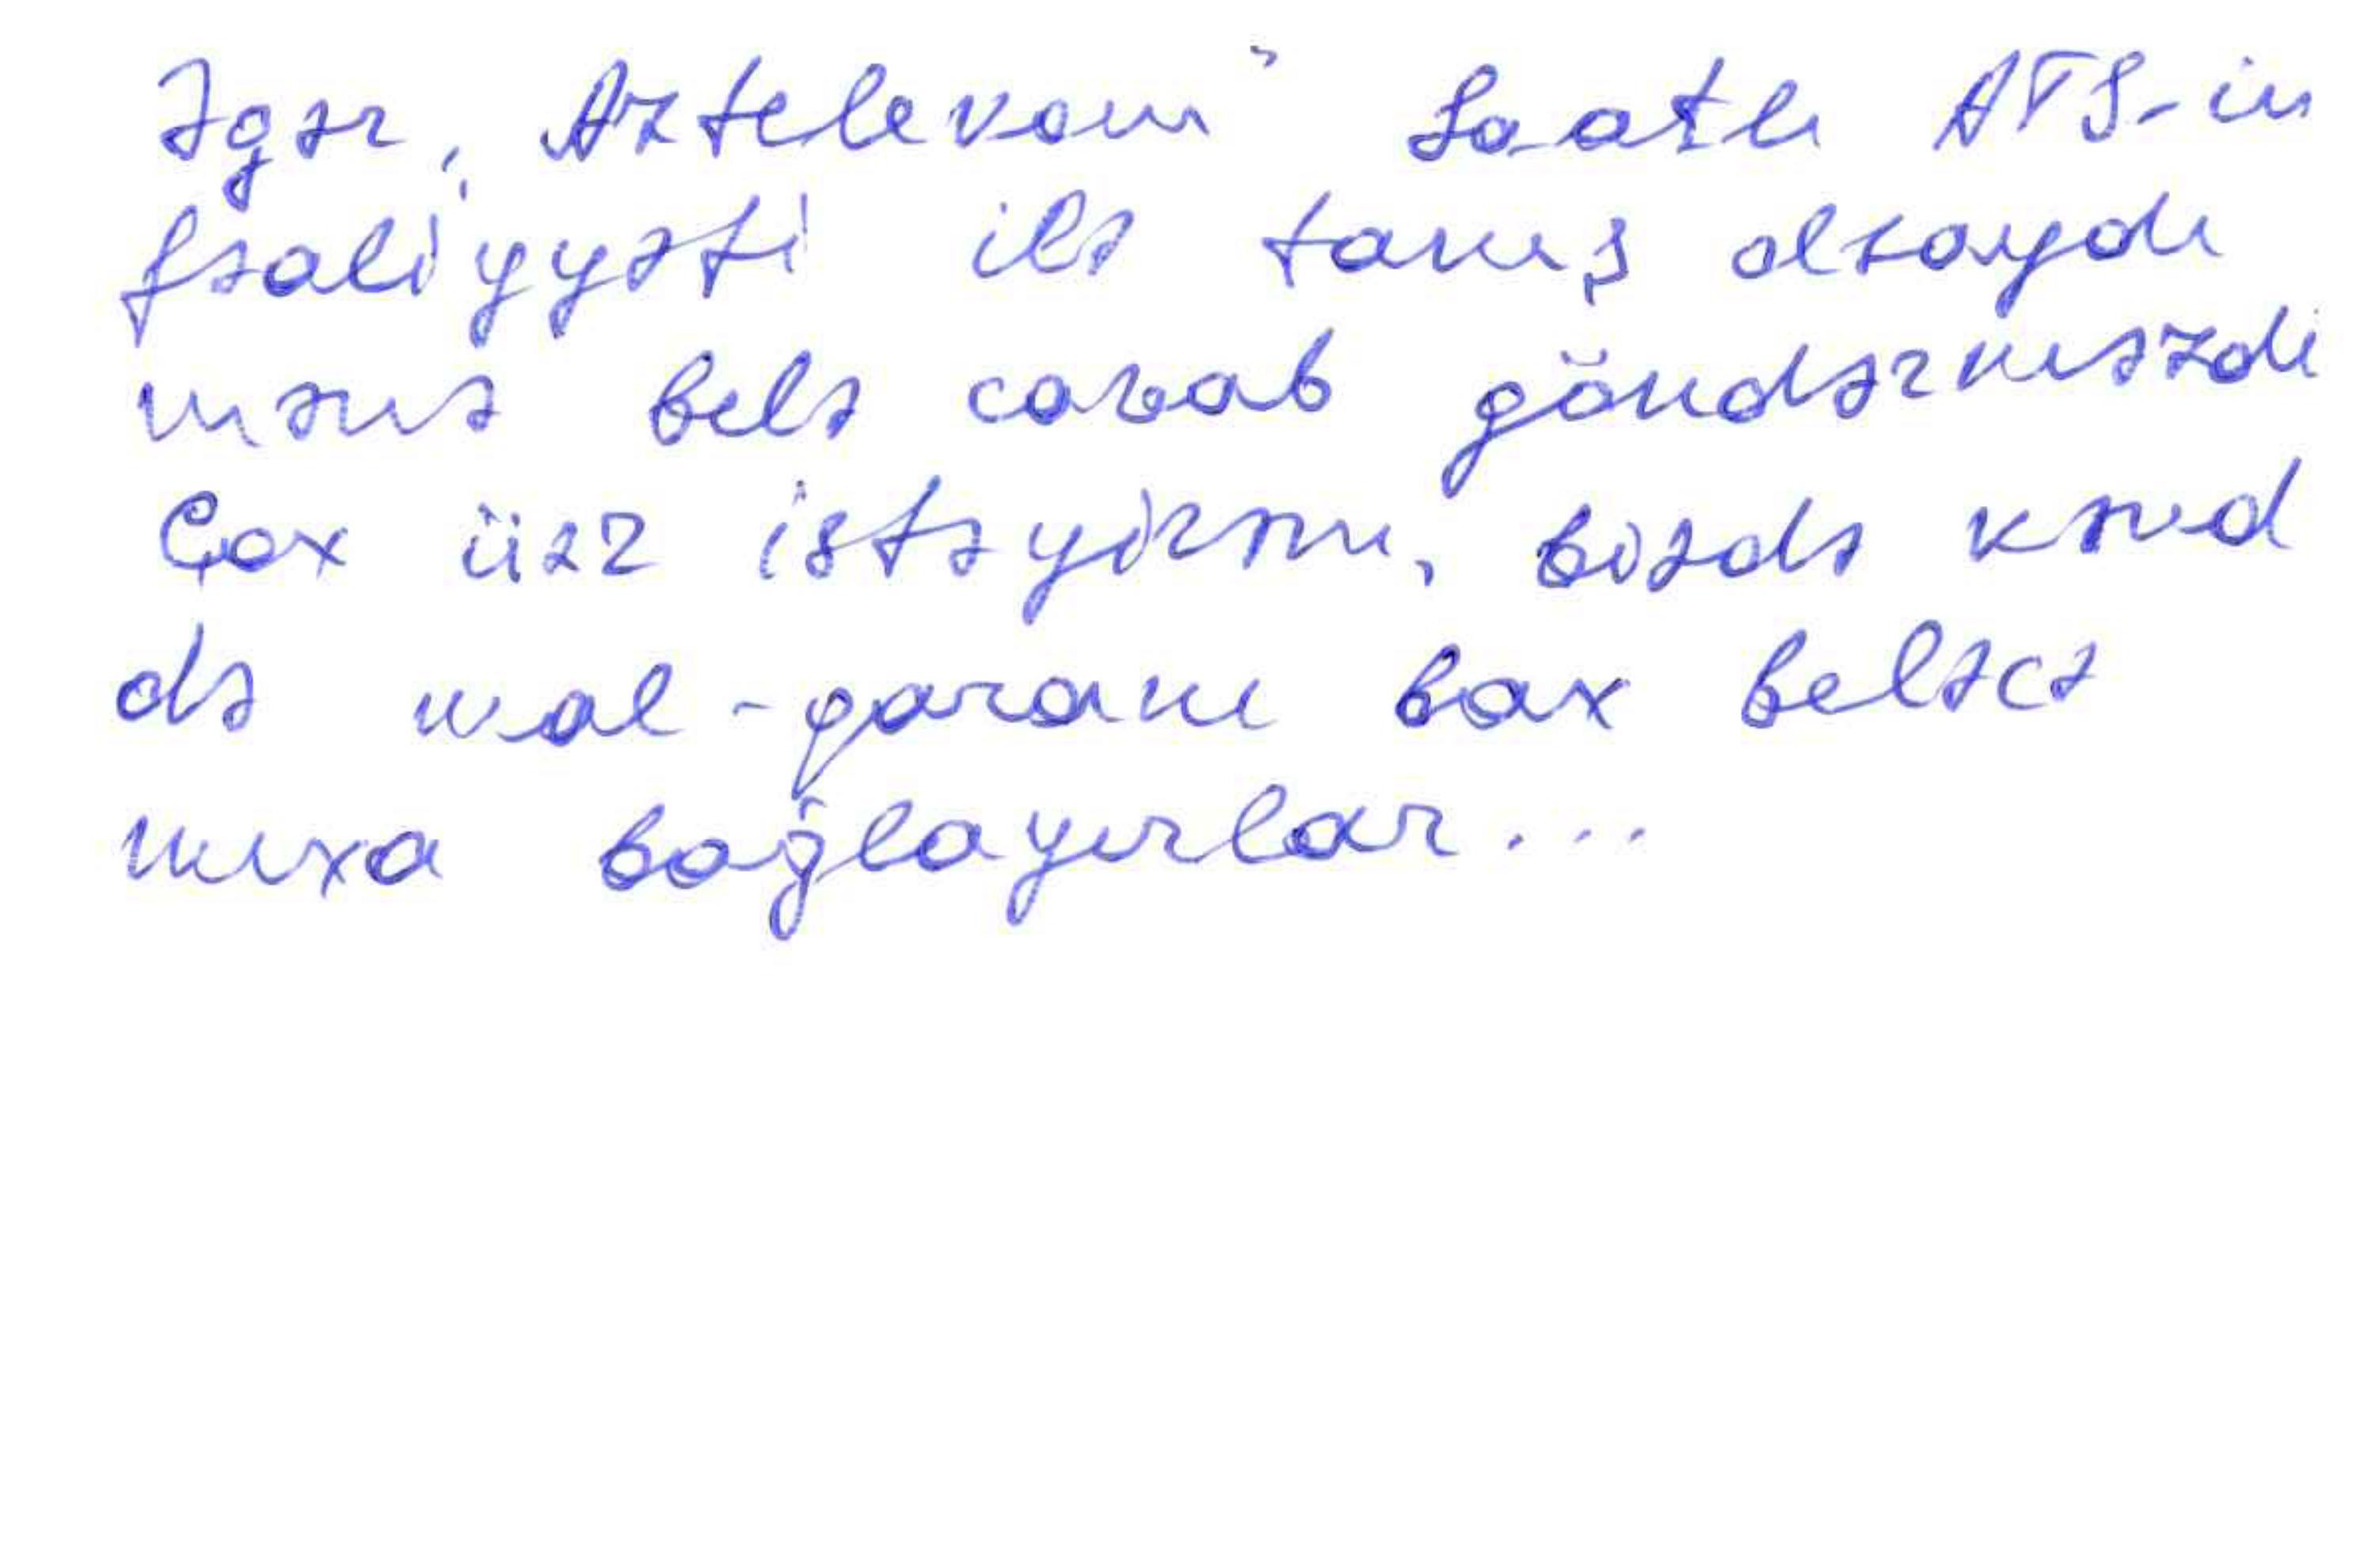 Əgər „Aztelekom" Saatlı ATS-in
fəaliyyəti ilə tanış olsaydı
mənə belə cavab göndərməzdi
Çox üzr istəyirəm, bizdə kənd
də mal-qaranı bax beləcə
mıxa bağlayırlar...